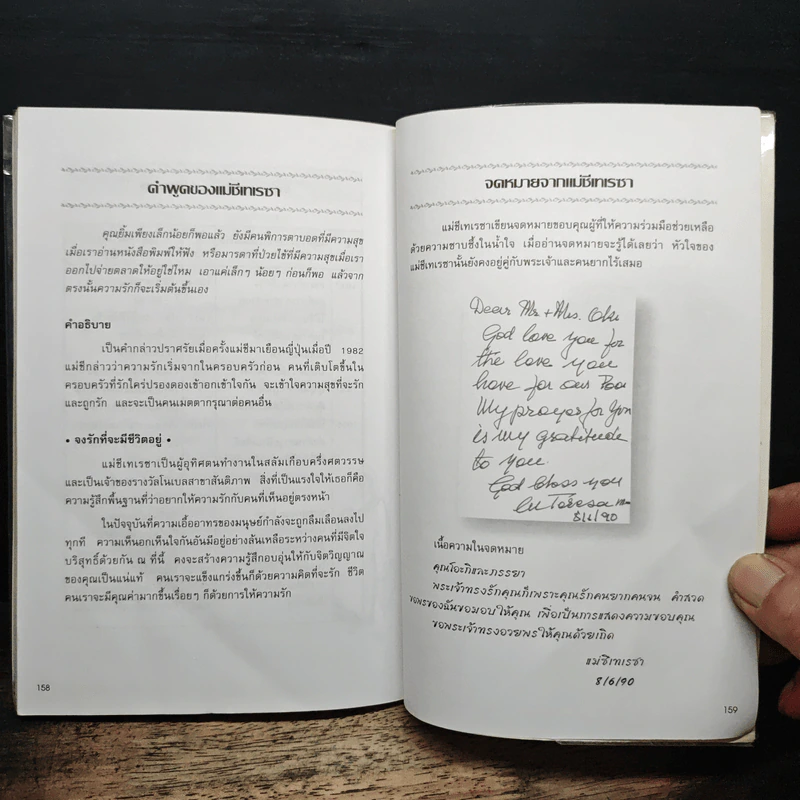 คำพูดของแม่ชีเทเรซา
คุณยิ้มเพียงเล็กน้อยก็พอแล้ว ยังมีคนพิการตาบอดที่มีความสุข
เมื่อเราอ่านหนังสือพิมพ์ให้ฟัง หรือมารดาที่ป่วยใช้ที่มีความสุขเมื่อเรา
ออกไปจ่ายตลาดให้อยู่ใช่ไหม เอาแค่เล็กๆ น้อยๆ ก่อนก็พอ แล้วจาก
ตรงนั้นความรักก็จะเริ่มต้นขึ้นเอง
คำอธิบาย
เป็นคำกล่าวปราศรัยเมื่อครั้งแม่ชีมาเยือนญี่ปุ่นเมื่อปี 1982
แม่ชีกล่าวว่าความรักเริ่มจากในครอบครัวก่อน คนที่เติบโตขึ้นใน
ครอบครัวที่รักใคร่ปรองดองเข้าอกเข้าใจกัน จะเข้าใจความสุขที่จะรัก
และถูกรัก และจะเป็นคนเมตตากรุณาต่อคนอื่น
• จงรักที่จะมีชีวิตอยู่ •
แม่ชีเทเรซาเป็นผู้อุทิศตนทำงานในสลัมเกือบครึ่งศตวรรษ
และเป็นเจ้าของรางวัลโนเบลสาขาสันติภาพ สิ่งที่เป็นแรงใจให้เธอก็คือ
ความรู้สึกพื้นฐานที่ว่าอยากให้ความรักกับคนที่เห็นอยู่ตรงหน้า
ในปัจจุบันที่ความเอื้ออาทรของมนุษย์กำลังจะถูกลืมเลือนลงไป
ทุกที ความเห็นอกเห็นใจกันอันมีอยู่อย่างล้นเหลือระหว่างคนที่มีจิตใจ
บริสุทธิ์ด้วยกัน ณ ที่นี้ คงจะสร้างความรู้สึกอบอุ่นให้กับจิตวิญญาณ
ของคุณเป็นแน่แท้ คนเราจะแข็งแกร่งขึ้นก็ด้วยความคิดที่จะรัก ชีวิต
คนเราจะมีคุณค่ามากขึ้นเรื่อยๆ ก็ด้วยการให้ความรัก
158
จดหมายจากแม่ชีเทเรซา
แม่ชีเทเรซาเขียนจดหมายขอบคุณผู้ที่ให้ความร่วมมือช่วยเหลือ
ด้วยความซาบซึ้งในน้ำใจ เมื่ออ่านจดหมายจะรู้ได้เลยว่า หัวใจของ
แม่ชีเทเรซานั้นยังคงอยู่คู่กับพระเจ้าและคนยากไร้เสมอ
Dear Mr. + Mrs. Oki
God love you for
the love you
have for our Poor
My prayer for you
is my gratitude
to you.
God bless you
M Teresa mc
8/6/90
เนื้อความในจดหมาย
คุณโอะกิและภรรยา
พระเจ้าทรงรักคุณก็เพราะคุณรักคนยากคนจน คำสวด
ขอพรของฉันขอมอบให้คุณ เพื่อเป็นการแสดงความขอบคุณ
ขอพระเจ้าทรงอวยพรให้คุณด้วยเถิด
แม่ชีเทเรซา
8/6/90
159